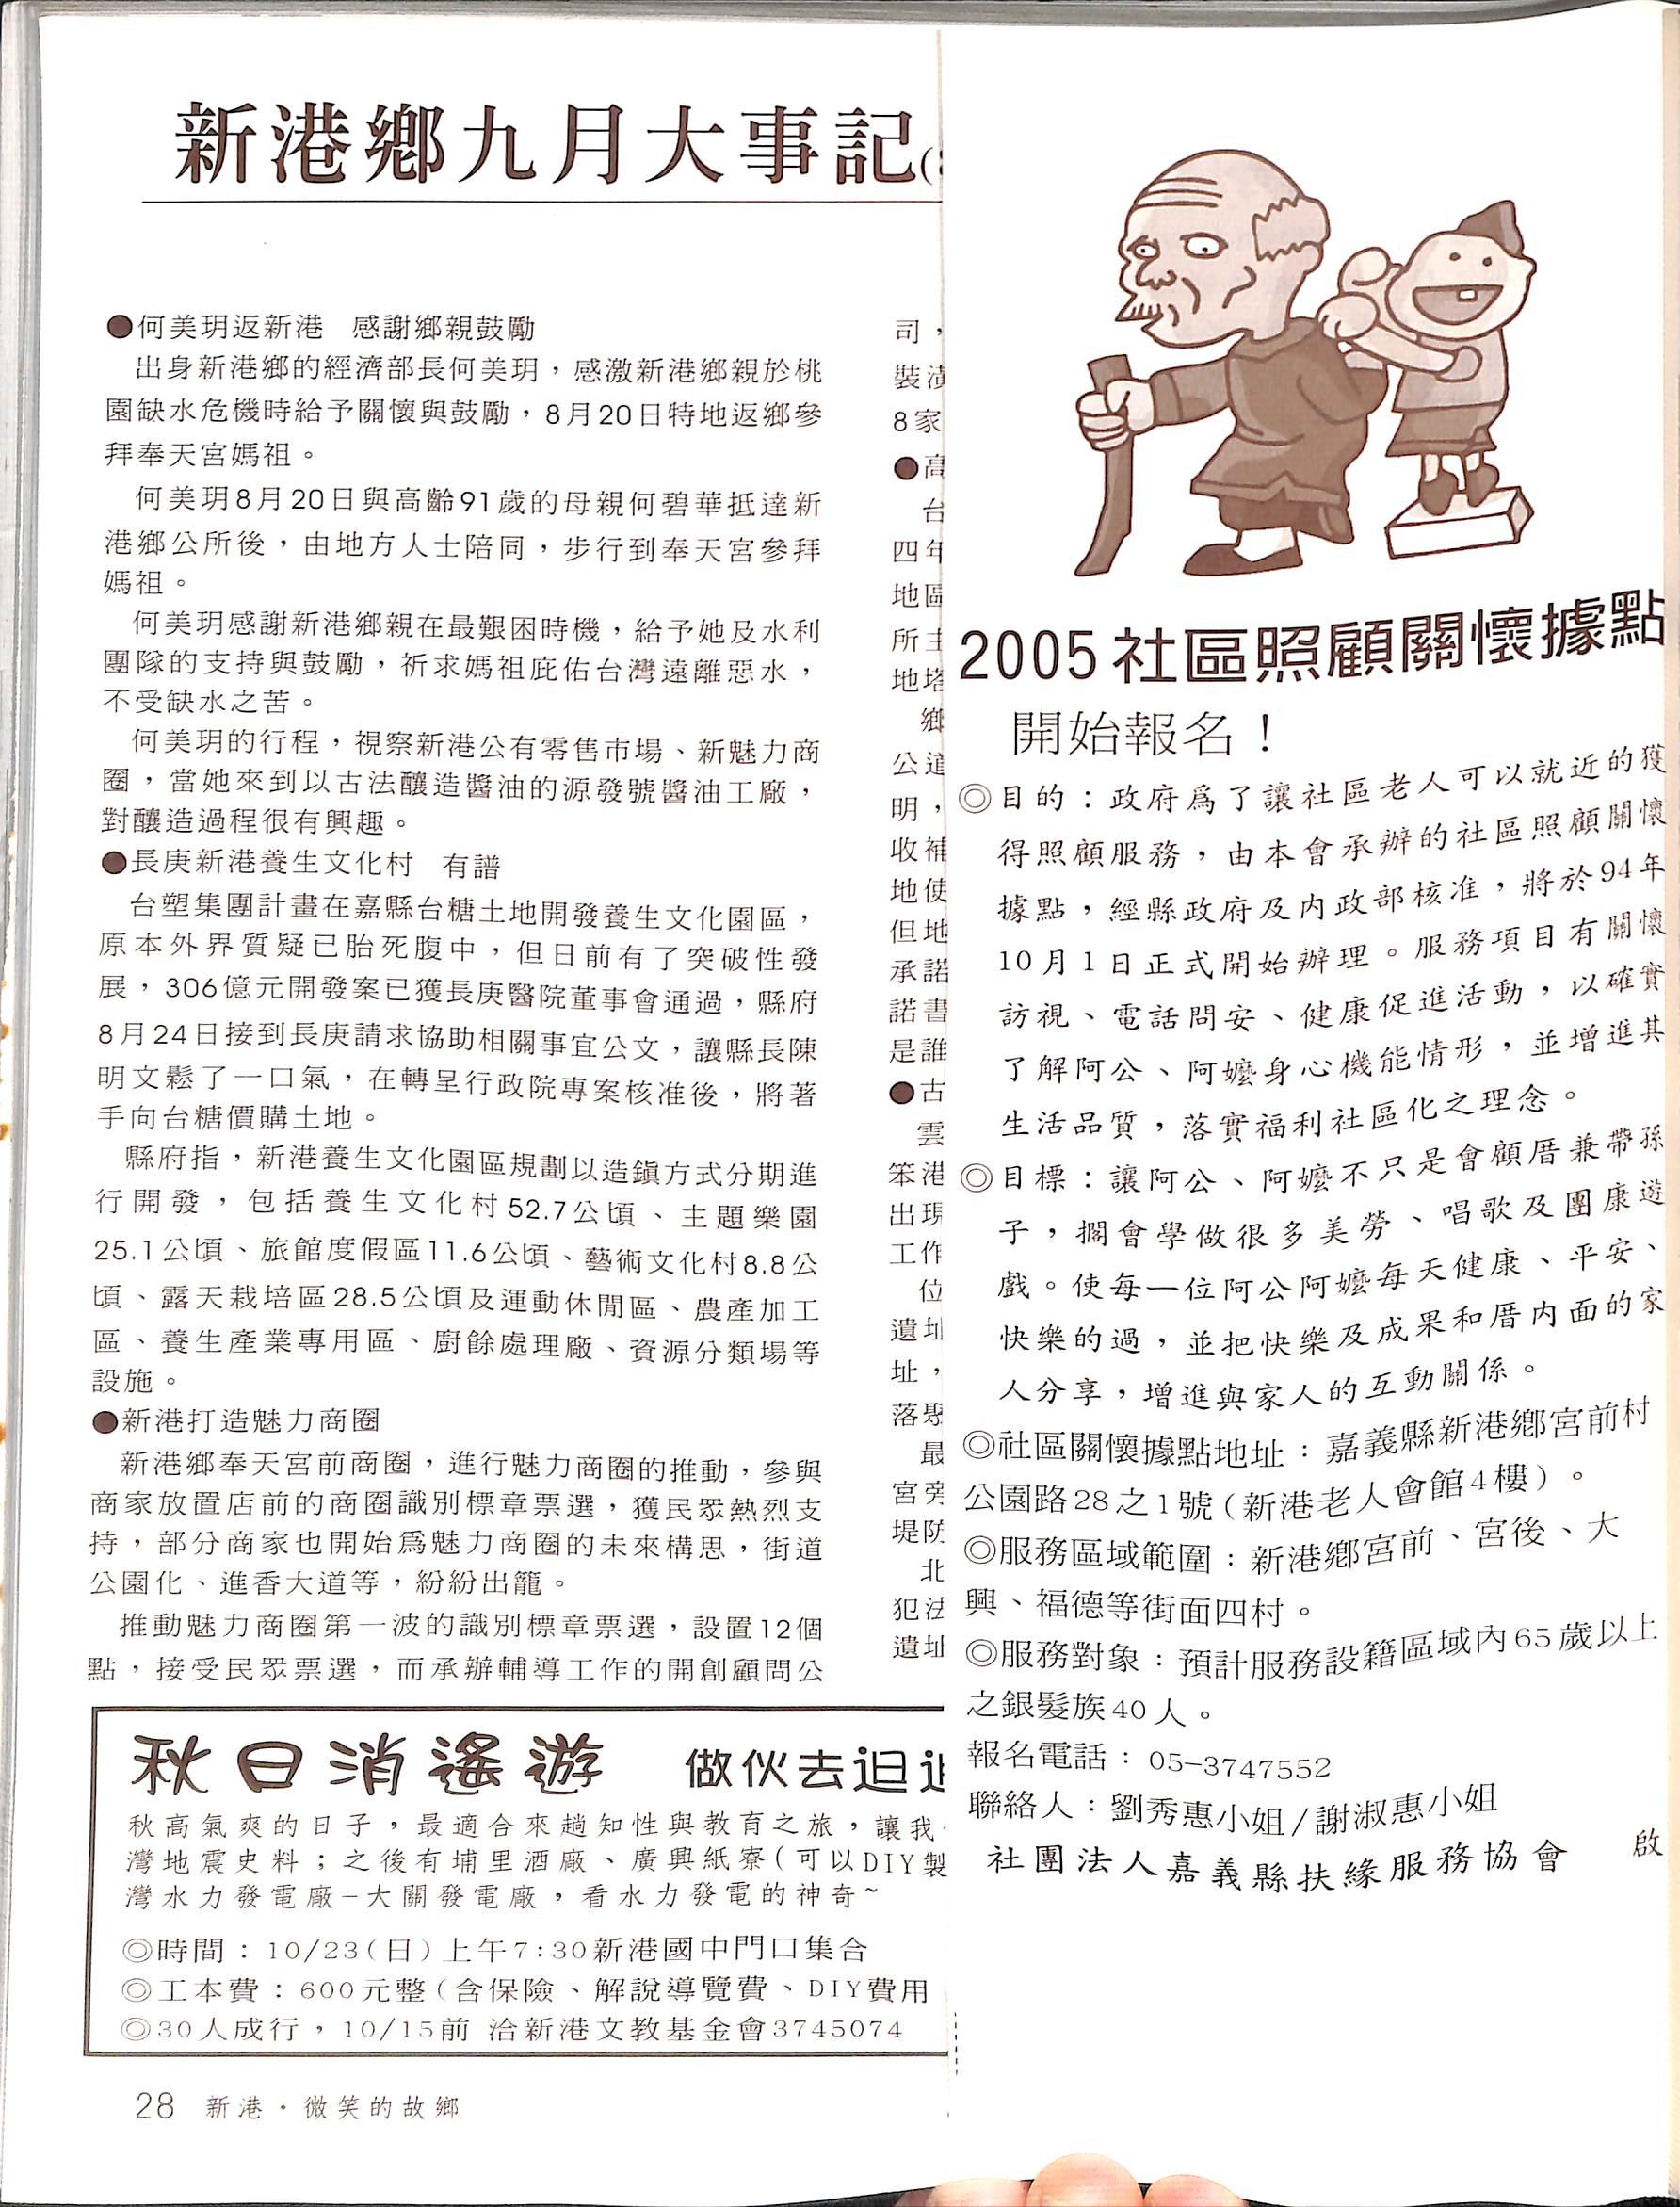 新港鄉九月大事記(
●何美玥返新港　感謝鄉親鼓勵
出身新港鄉的經濟部長何美玥，感激新港鄉親於桃
園缺水危機時給予關懷與鼓勵，8月20日特地返鄉參
拜奉天宮媽祖。
何美玥8月20日與高齡91歲的母親何碧華抵達新
港鄉公所後，由地方人士陪同，步行到奉天宮參拜
媽祖。
何美玥感謝新港鄉親在最艱困時機，給予她及水利
團隊的支持與鼓勵，祈求媽祖庇佑台灣遠離惡水，
不受缺水之苦。
何美玥的行程，視察新港公有零售市場、新魅力商
圈，當她來到以古法釀造醬油的源發號醬油工廠，
對釀造過程很有興趣。
●長庚新港養生文化村　有譜
台塑集團計畫在嘉縣台糖土地開發養生文化園區，
原本外界質疑已胎死腹中，但日前有了突破性發
展，306億元開發案已獲長庚醫院董事會通過，縣府
8月24日接到長庚請求協助相關事宜公文，讓縣長陳
明文鬆了一口氣，在轉呈行政院專案核准後，將著
手向台糖價購土地。
縣府指，新港養生文化園區規劃以造鎮方式分期進
行開發，包括養生文化村52.7公頃、主題樂園
25.1公頃、旅館度假區11.6公頃、藝術文化村8.8公
頃、露天栽培區28.5公頃及運動休閒區、農產加工
區、養生產業專用區、廚餘處理廠、資源分類場等
設施。
●新港打造魅力商圈
新港鄉奉天宮前商圈，進行魅力商圈的推動，參與
商家放置店前的商圈識別標章票選，獲民眾熱烈支
持，部分商家也開始為魅力商圈的未來構思，街道
公園化、進香大道等，紛紛出籠。
推動魅力商圈第一波的識別標章票選，設置12個
點，接受民眾票選，而承辦輔導工作的開創顧問公
司，
裝潢
8家
●高
台
四年
地區
所主
地塔
鄉
公道
明，
收補
地使
但地
承諾
諾書
是誰
●古
雲
笨港
出現
工作
位
遺址
址，
落聚
最
宮旁
堤防
北
犯法
遺址
秋日消遙遊　做伙去迌
秋高氣爽的日子，最適合來趟知性與教育之旅，讓我
灣地震史料；之後有埔里酒廠、廣興紙寮(可以DIY製
灣水力發電廠-大關發電廠，看水力發電的神奇~
◎時間：10/23(日)上午7:30新港國中門口集合
◎工本費：600元整(含保險、解說導覽費、DIY費用
◎30人成行，10/15前 洽新港文教基金會3745074
28 新港·微笑的故鄉
2005社區照顧關懷據點
開始報名！
◎目的：政府為了讓社區老人可以就近的獲
得照顧服務，由本會承辦的社區照顧關懷
據點，經縣政府及內政部核准，將於94年
10月1日正式開始辦理。服務項目有關懷
訪視、電話問安、健康促進活動，以確實
了解阿公、阿嬤身心機能情形，並增進其
生活品質，落實福利社區化之理念。
◎目標：讓阿公、阿嬤不只是會顧厝兼帶孫
子，擱會學做很多美勞、唱歌及團康遊
戲。使每一位阿公阿嬤每天健康、平安、
快樂的過，並把快樂及成果和厝內面的家
人分享，增進與家人的互動關係。
◎社區關懷據點地址：嘉義縣新港鄉宮前村
公園路28之1號(新港老人會館4樓)。
◎服務區域範圍：新港鄉宮前、宮後、大
興、福德等街面四村。
◎服務對象：預計服務設籍區域內65歲以上
之銀髮族40人。
報名電話：05-3747552
聯絡人：劉秀惠小姐/謝淑惠小姐
社團法人嘉義縣扶緣服務協會　啟